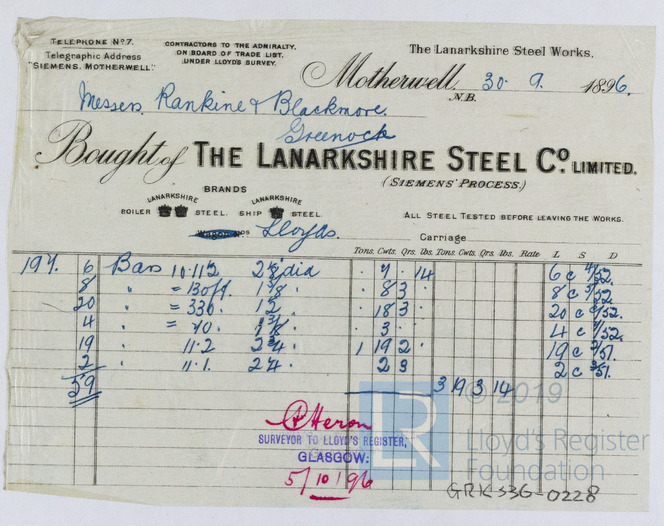 TELEPHONE No 7.
Telegraphic Address
"SIEMENS, MOTHERWELL."
CONTRACTORS TO THE ADMIRALTY,
ON BOARD OF TRADE LIST,
UNDER LLOYD'S SURVEY.
The Lanarkshire Steel Works.
Motherwell, 30. 9. 1896.
N.B.
Messrs. Rankine & Blackmore.
Greenock
Bought of THE LANARKSHIRE STEEL Co. LIMITED.
(SIEMENS' PROCESS.)
BRANDS
LANARKSHIRE LANARKSHIRE
BOILER STEEL. SHIP STEEL.
ALL STEEL TESTED BEFORE LEAVING THE WORKS.
Lloyds. Carriage
Tons. Cwts. Qrs. lbs. Tons. Cwts. Qrs. lbs. Rate L S D
6 Bars 11.11½ dia . 7 . 14 6 c
8 " = 13 off. . 8 3 . 8 c
20 " = 330. . 18 3 20 c
4 " = 70. . 3 . 4 c
19 " 11.2 1 19 2 . 19 c
2 " 11.1. 2 3 2 c
59 3 19 3 14
A Heron
SURVEYOR TO LLOYD'S REGISTER,
GLASGOW:
5/10/96
© 2019
LR
Lloyd's Register
Foundation
GRK-S36-0228